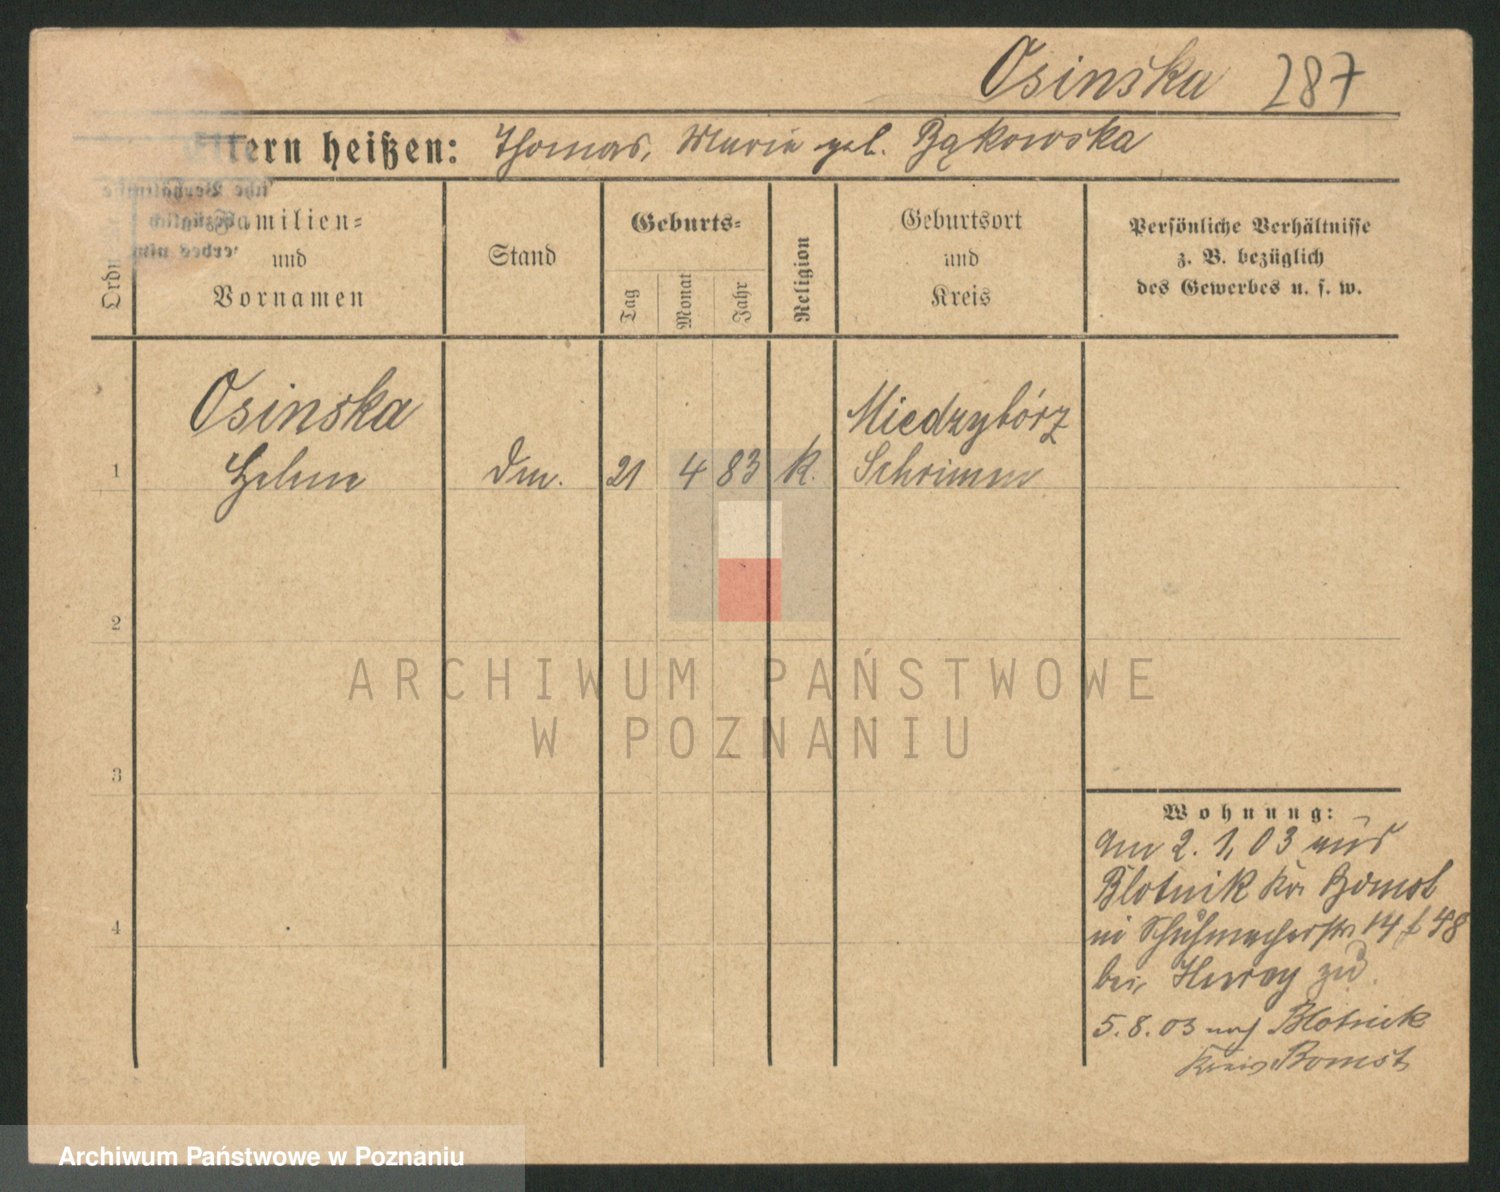 Osinska 287
Eltern heißen: Thomas, Marie geb. Bąkowska
Familien=
und
Vornamen
Stand
Geburts=
Tag
Monat
Jahr
Religion
Geburtsort
und
Kreis
Persönliche Verhältnisse
z. B. bezüglich
des Gewerbes u. s. w.
Osinska
Miedzybórz
1 Helene 21 4 83 k. Schrimm
2
3
4
Wohnung:
Am 2. 1. 03 aus
Blotnik Kr. Bomst
in Schuhmacherstr. 14
bei zu
5. 8. 03 nach Blotnik
Kreis Bomst
ARCHIWUM PAŃSTWOWE
W POZNANIU
Archiwum Państwowe w Poznaniu